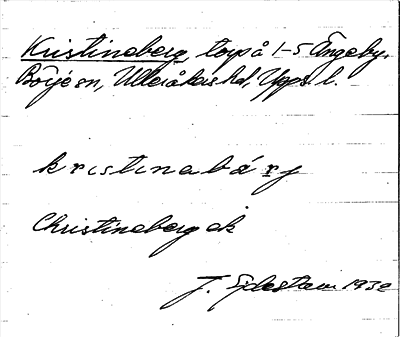 Kristineberg, torp å 1-5 Ängeby,
Börje sn, Ulleråkers hd, Upps. l.
kristinabárj
Christineberg ek
J. Sjdestam 1932